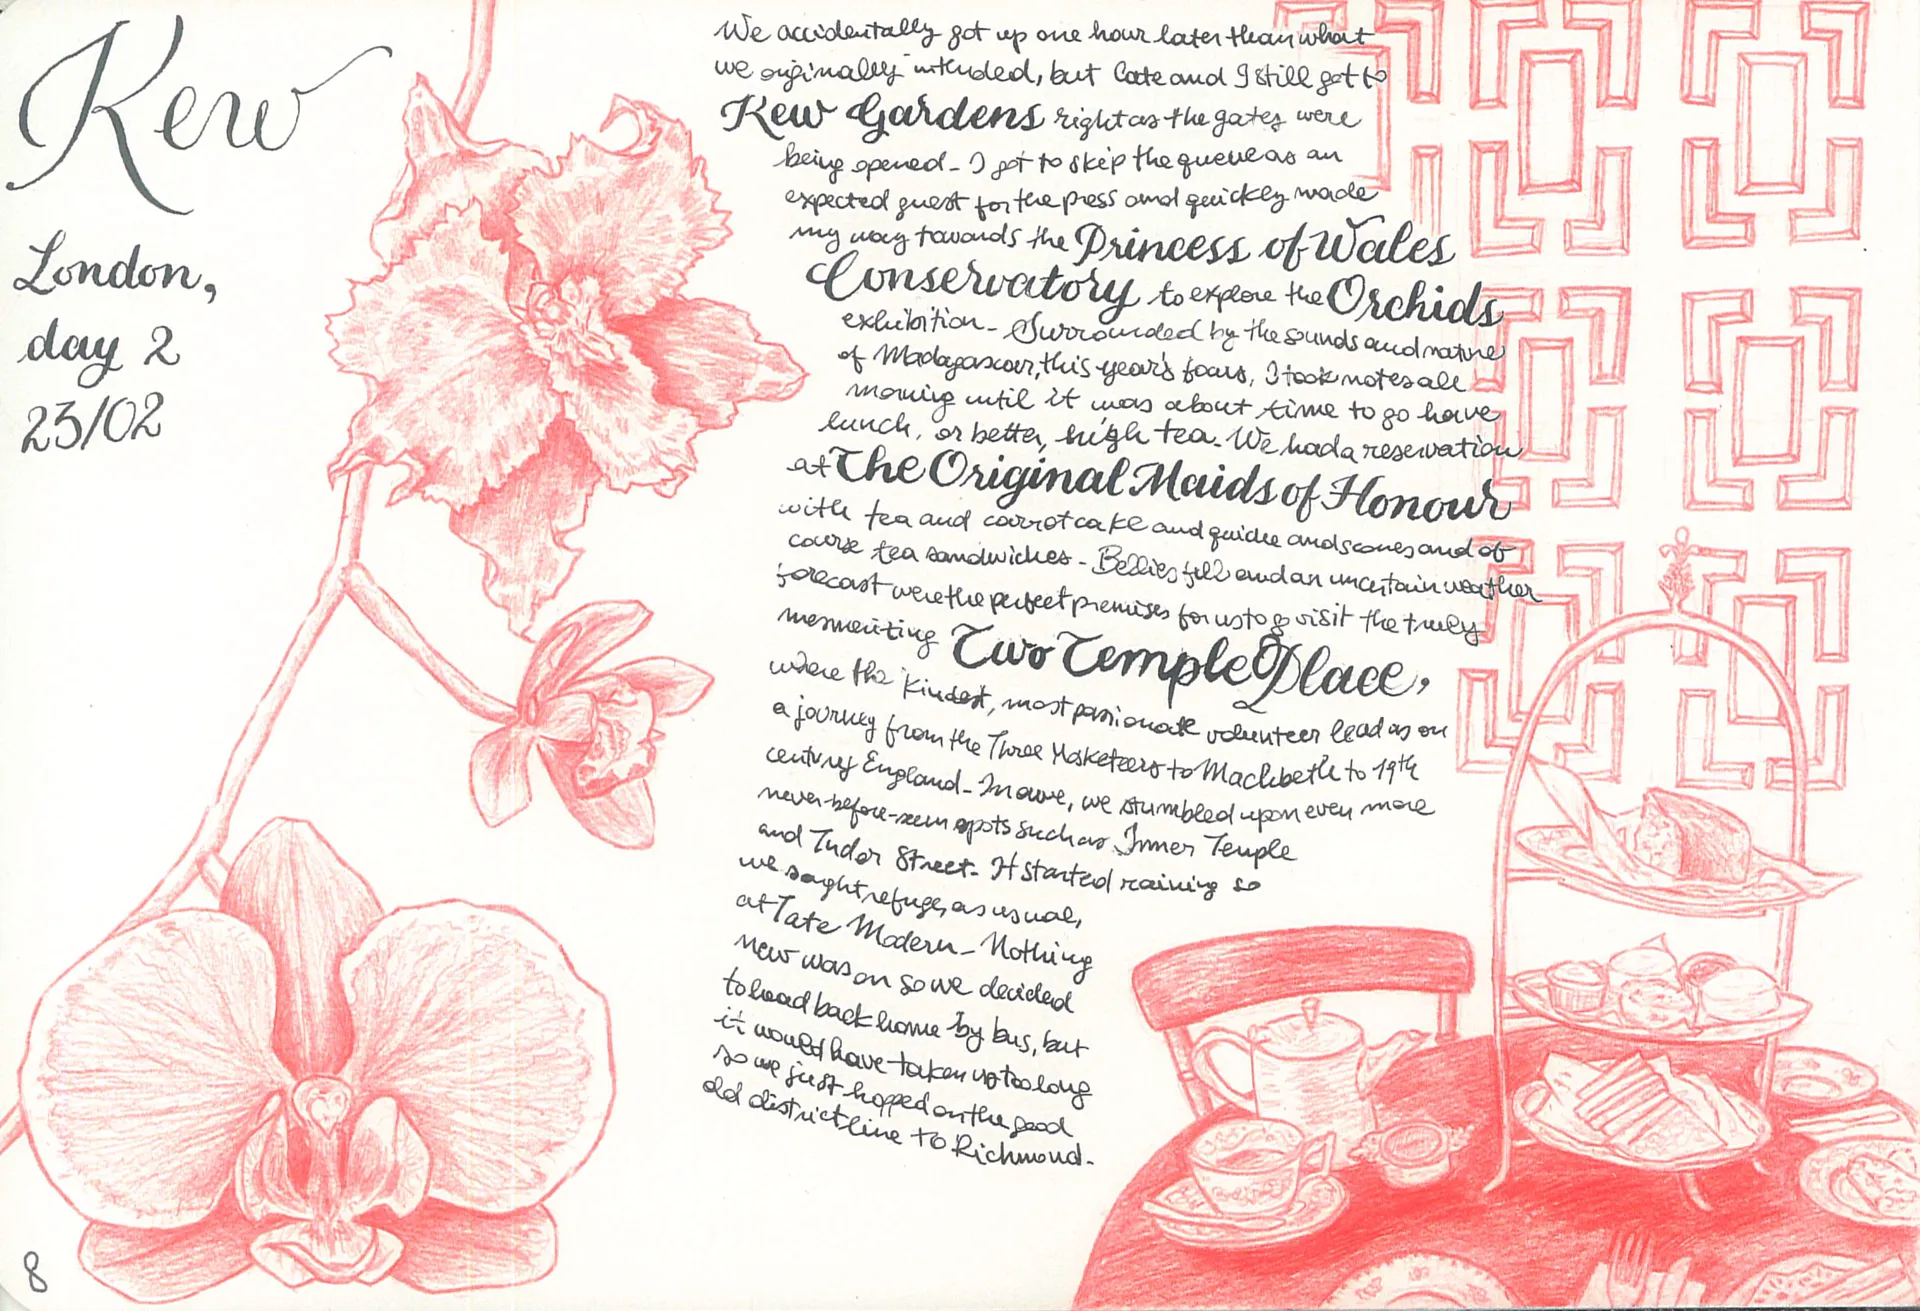 Kew
London,
day 2
23/02
We accidentally got up one hour later than what
we originally intended, but Cate and I still got to
Kew Gardens right as the gates were
being opened - I got to skip the queue as an
expected guest for the press and quickly made
my way towards the Princess of Wales
Conservatory to explore the Orchids
exhibition - Surrounded by the sounds and nature
of Madagascar, this year's focus, I took notes all
morning until it was about time to go have
lunch, or better, high tea. We had a reservation
at The Original Maids of Honour
with tea and carrot cake and quiche and scones and of
course tea sandwiches - Bellies full and an uncertain weather
forecast were the perfect premises for us to go visit the truly
mesmerizing Two Temple Place,
where the kindest, most passionate volunteer lead as on
a journey from the Three Musketeers to Machbeth to 19th
century England - In awe, we stumbled upon even more
never-before-seen spots such as Inner Temple
and Tudor Street - It started raining so
we saught refuge, as usual,
at Tate Modern - Nothing
new was on so we decided
to head back home by bus, but
it would have taken us too long
so we just hopped on the good
old district line to Richmond.
8